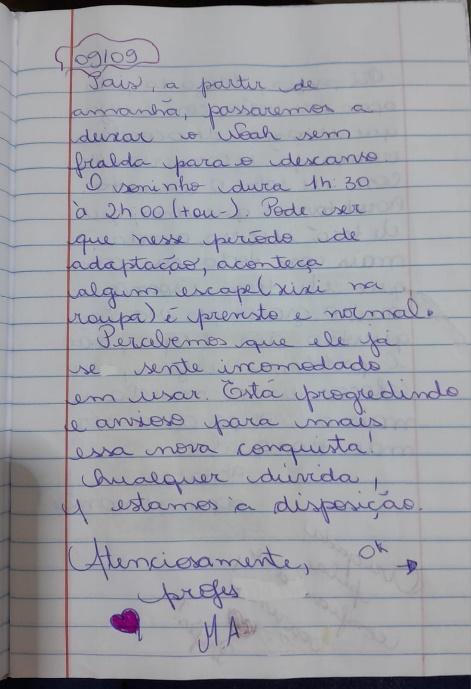 09/09
Pais, a partir de
amanhã, passaremos a
deixar o Noah sem
fralda para o descanso
O soninho dura 1h:30
à 2h00 (+ou-). Pode ser
que nesse período de
adaptação, aconteça
algum escape (xixi na
roupa) é previsto e normal.
Percebemos que ele já
se sente incomodado
em usar. Está progredindo
e ansioso para mais
essa nova conquista!
Qualquer dúvida,
estamos à disposição.
Atenciosamente, Ok →
profes
M.A